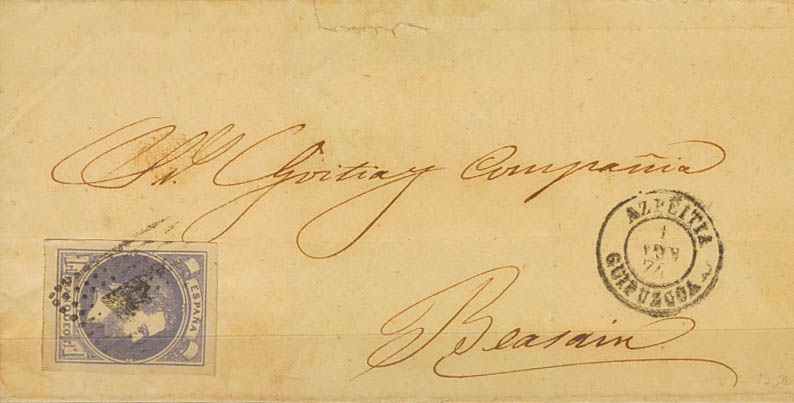 Sres. Goitia y Compañia
AZPEITIA
1
NOV
74
GUIPUZCOA
ESPAÑA
Beasain